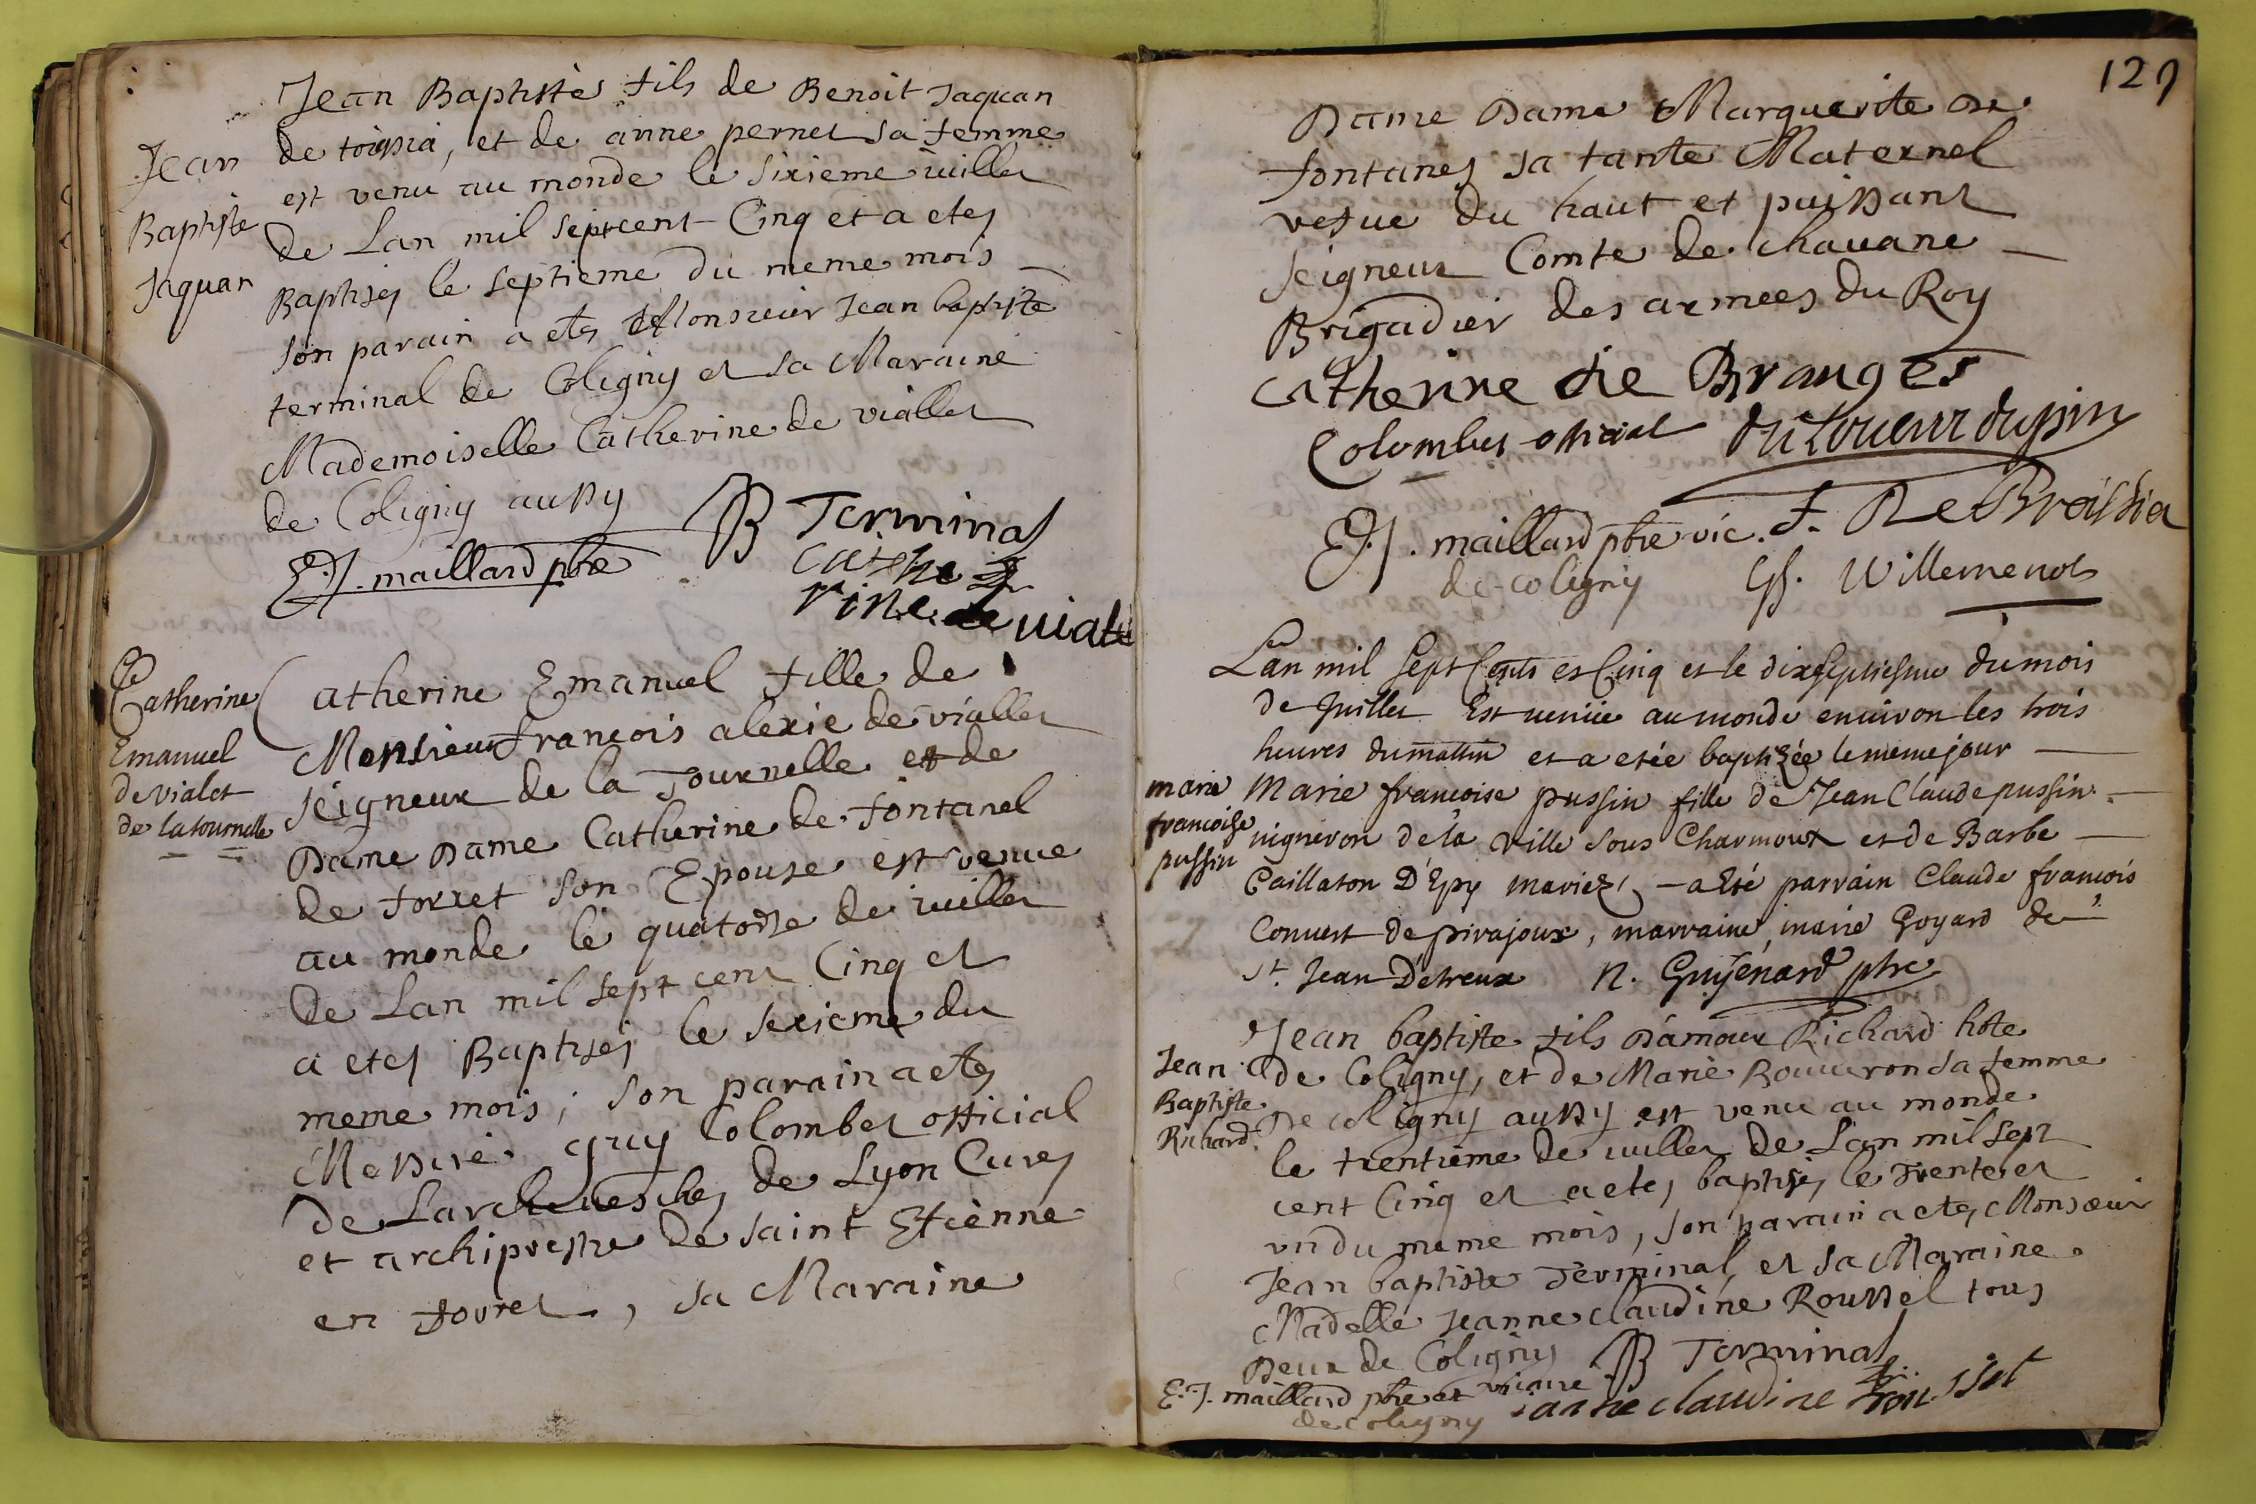 Jean
Baptiste
Jaquan
Jean Baptiste fils de Benoit Jaquan
de toissia, et de anne pernet sa femme
est venu au monde le sixieme iuillet
de Lan mil septcent Cinq et a etes
Baptises le septieme du meme mois
son parain a etes Monsieur Jean baptiste
terminal de Coligny et sa Maraine
Mademoiselle Catherine de viallet
de Coligny aussy
JB Terminal
E.J. maillard pbre
Cathe
rine de uialet
Catherine
Emanuel
de vialet
de la tournelle
Catherine Emanuel fille de
Monsieur francois alexie de viallet
seigneur de la Tournelle et de
Dame Dame Catherine de fontanel
de forret son Epouse est venue
au monde le quatorse de iuillet
de Lan mil sept cent Cinq et
a etes Baptises le sexieme du
meme mois, son parain a etes
Messire guy Colombet official
de Larcheuesches de Lyon Cures
et archiprestre de saint Etienne
en fouret, sa Maraine
129
Dame Dame Marguerite de
fontanes sa tante Maternel
vefue du haut et puissant
seigneur Comte de chauane
Brigadier des armees du Roy
Catherine de Branges
Colombet official
E.J. maillard pbre vic. f. De Broissia
de coligny Willemenot
Lan mil sept Cents et Cinq et le dixseptiesme du mois
de Juillet Est uenüe au monde enuiron les trois
heures du mattin et a etée baptizée le meme jour
marie
francoise
pussin
Marie francoise pussin fille de Jean Claude pussin
uigneron de la ville sous Charmoux et de Barbe
Caillaton D'Epy mariez, a Eté parrain Claude francois
Conuert de pirajoux, marraine marie Goyard de
st. Jean D'étreux N. Guÿenard ptre
Jean
Baptiste
Richard.
Jean baptiste fils D'amour Richard hote
de Coligny, et de Marie Bouueron sa femme
De coligny aussy est venu au monde
le trentieme de iuillet de Lan mil sept
cent Cinq et a etes baptises le trente et
vn du meme mois, son parain a etes Monsieur
Jean baptiste Terminal, et sa Maraine
Madelle Jeanne claudine Roussel tous
Deux de Coligny JB Terminal
E.J. maillard pbre et vicaire
de coligny
ianne claudine rousset